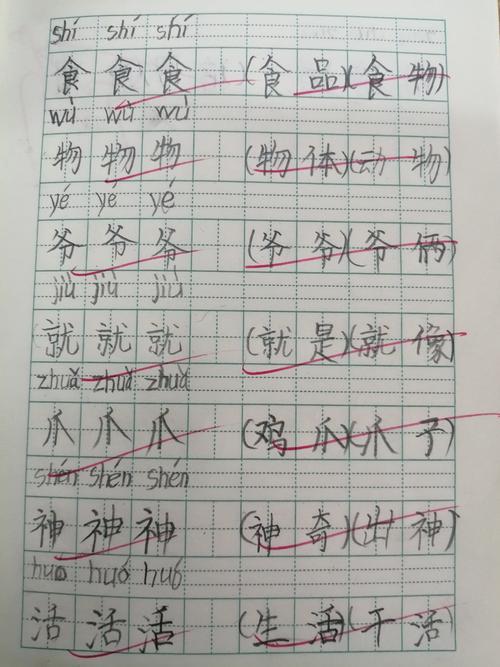 shí shí shí
食 食 食 (食 品)(食 物)
wù wù wù
物 物 物 (物 体)(动 物)
yé yé yé
爷 爷 爷 (爷 爷)(爷 俩)
jiù jiù jiù
就 就 就 (就 是)(就 像)
zhuǎ zhuǎ zhuǎ
爪 爪 爪 (鸡 爪)(爪 子)
shén shén shén
神 神 神 (神 奇)(出 神)
huó huó huó
活 活 活 (生 活)(干 活)